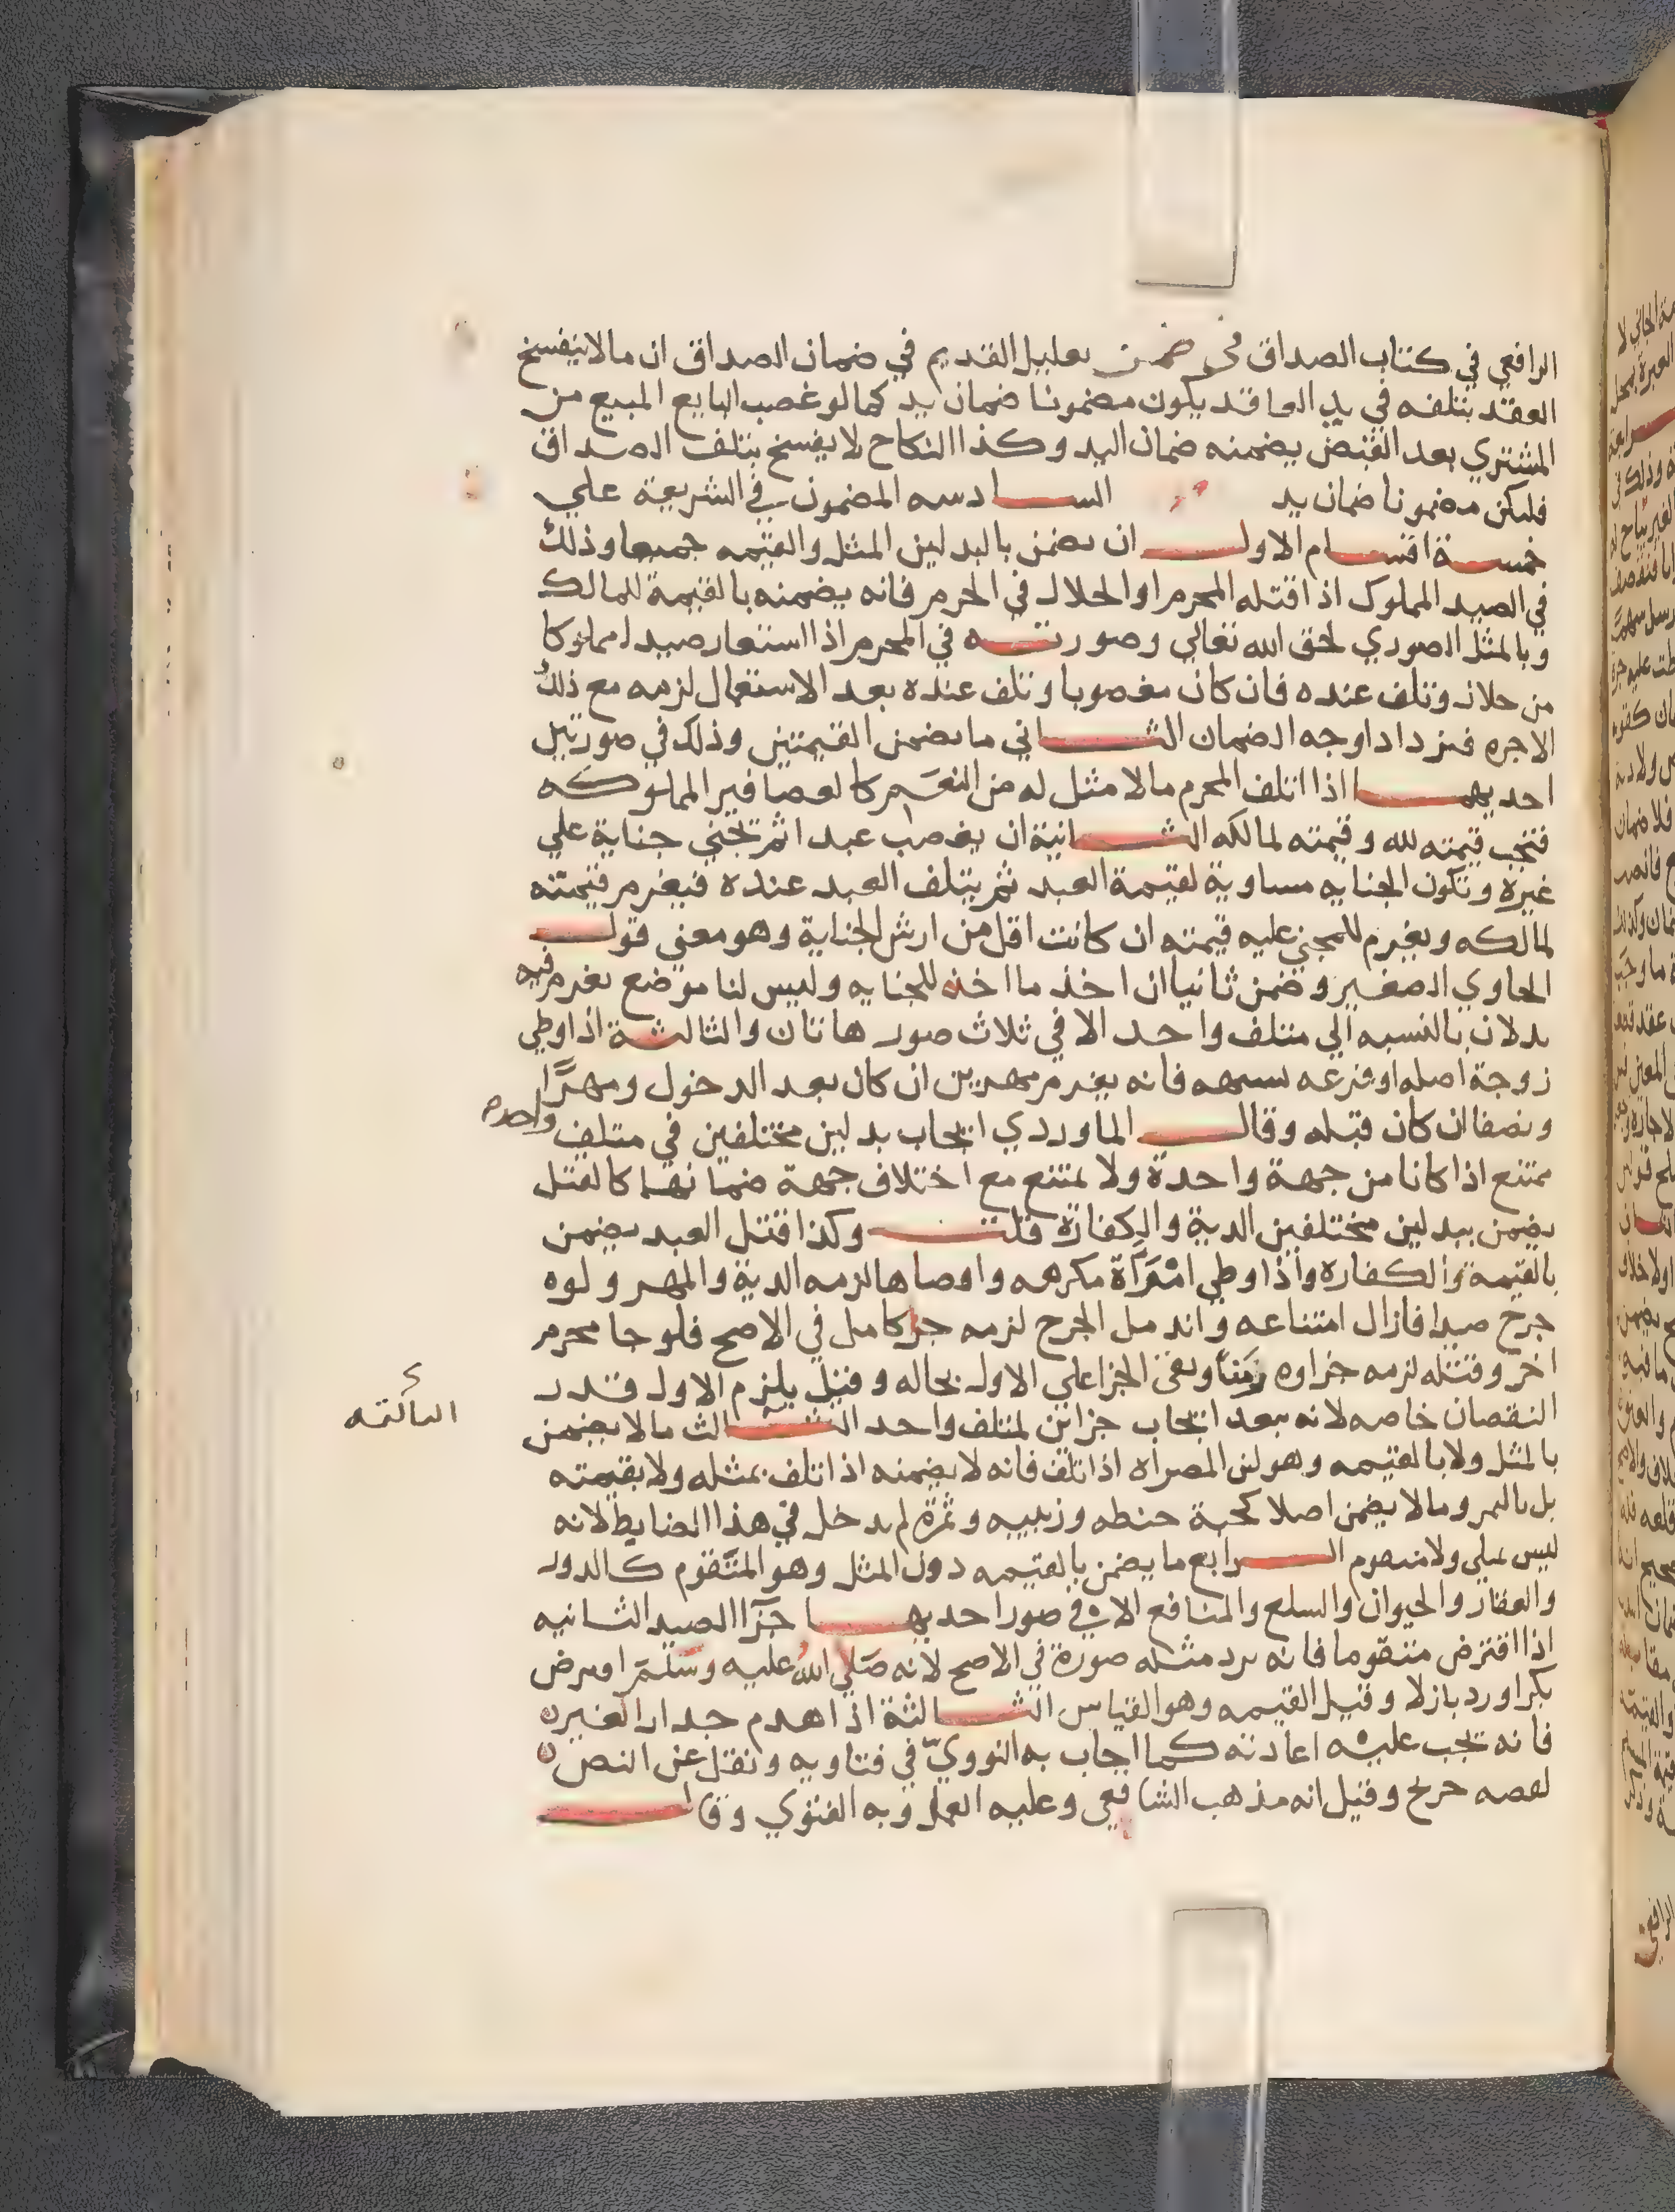 الرافعي في كتاب الصداق في ضمن تعليل القديم في ضمان الصداق ان مالا ينفسخ
العقد بتلفه في يد العاقد يكون مضمونا ضمان يد كما لو غصب البايع المبيع من
المشتري بعد القبض يضمنه ضمان اليد وكذا النكاح لا يفسخ بتلف الصداق
فليكن مضمونا ضمان يد السادسه المضمون في الشريعة علي
خمسة اقسام الاول ان يضمن بالبدلين المثل والقيمه جميعا وذلك
في الصيد المملوك اذا قتله المحرم او الحلال في الحرم فانه يضمنه بالقيمة للمالك
وبالمثل الصوري لحق الله تعالي وصورته في المحرم اذا استعار صيدا مملوكا
من حلال وتلف عنده فان كان مغصوبا وتلف عنده بعد الاستعمال لزمه مع ذلك
الاجره فيزداد اوجه الضمان الثاني ما يضمن القيمتين وذلك في صورتين
احديهما اذا اتلف المحرم مالا مثل له من النعم كالعصافير المملوكه
فتجب قيمته لله وقيمته لمالكه الثانية ان يغصب عبدا ثم تجني جناية علي
غيره وتكون الجنايه مساوية لقيمة العبد ثم يتلف العبد عنده فيغرم قيمته
لمالكه ويغرم للمجني عليه قيمته ان كانت اقل من ارش الجناية وهو معني قول
الحاوي الصغير وضمن ثانيا ان اخذ ما اخذه للجنايه وليس لنا موضع يغرم فيه
بدلان بالنسبه الي متلف واحد الا في ثلاث صور هاتان والثالثة اذا وطي
زوجة اصله او فرعه بشبهه فانه يغرم مهرين ان كان بعد الدخول ومهرًا
ونصفا ان كان قبله وقال الماوردي ايجاب بدلين مختلفين في متلف واحد
ممتنع اذا كانا من جهة واحدة ولا يمتنع مع اختلاف جهة ضمانهما كالقتل
يضمن ببدلين مختلفين الدية والكفارة قلت وكذا قتل العبد يضمن
بالقيمة والكفاره واذا وطي امْرَأَة مكرهه وافضاها لزمه الدية والمهر ولوه
جرح صيدا فازال امتناعه واندمل الجرح لزمه جزا كامل في الاصح فلو جا محرم
اخر وقتله لزمه جزاوه زمَنًا وبقي الجزا علي الاول بحاله وقيل يلزم الاول قدر
النقصان خاصه لانه يبعد ايجاب جزاين لمتلف واحد الثالث مالا يضمن
بالمثل ولا بالقيمه وهو لبن المصراه اذا تلف فانه لا يضمنه اذا تلف بمثله ولا بقيمته
بل بالتمر ومالا يضمن اصلا كحبة حنطه وزبيبه وثمرة لم يدخل في هذا الضابط لانه
ليس بمثلي ولا متقوم الرابع ما يضمن بالقيمه دون المثل وهو المتقوم كالدور
والعقار والحيوان والسلع والمنافع الا في صور احديها جزا الصيد الثانيه
اذا اقترض متقوما فانه يرد مثله صورة في الاصح لانه صَلي اللهُ عليه وسَلمَ اقترض
بكرا ورد بازلا وقيل القيمه وهو القياس الثالثة اذا هدم جدار الغير
فانه تجب عليه اعادته كما اجاب به النوويّ في فتاويه ونقل عن النص
لعصه خرج وقيل انه مذهب الشافعي وعليه العمل وبه الفتوي وقال